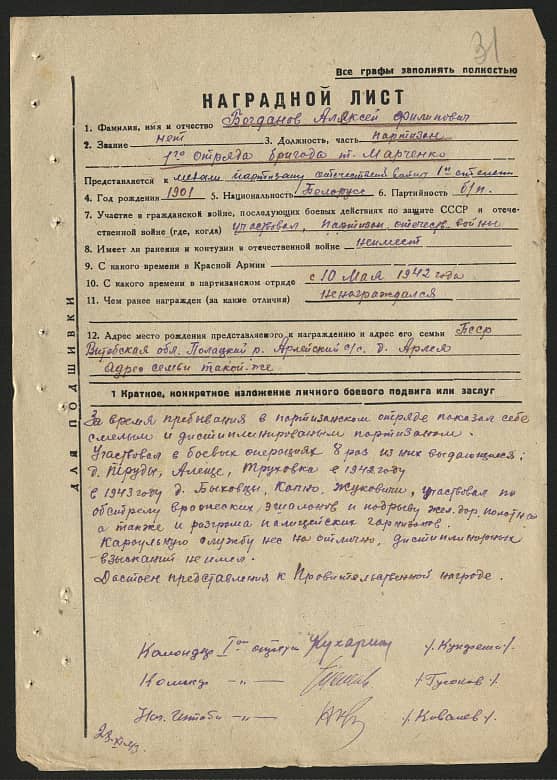 31
Все графы заполнять полностью
НАГРАДНОЙ ЛИСТ
1. Фамилия, имя и отчество Богданов Аляксей Филипович
2. Звание нет 3. Должность, часть партизан
1го отряда бригода т. Марченко
Представляется к медали партизану отечественой войны 1ой степени
4. Год рождения 1901 5. Национальность Белорусс 6. Партийность б/п.
7. Участие в гражданской войне, последующих боевых действиях по защите СССР и отече-
ственной войне (где, когда) участвовал, партизан отечеств. войны
8. Имеет ли ранения и контузии в отечественной войне неимеет
9. С какого времени в Красной Армии
10. С какого времени в партизанском отряде с 10 Мая 1942 года
11. Чем ранее награжден (за какие отличия) ненаграждался
12. Адрес место рождения представляемого к награждению и адрес его семьи БССР
Витебская обл. Полацкий р. Арлейский с/с. д. Арлея
Адрес семьи такой-же
ДЛЯ ПОДШИВКИ
1 Краткое, конкретное изложение личного боевого подвига или заслуг
За время пребывания в партизанском отряде показал себе
смелым и дистиплинированым партизаном.
Участвовал в боевых операциях 8 раз из них выдающиеся;
д. Труды, Алеще, Труховка в 1942 году
в 1943 году д. Быховцы, Капцю, Жуковичи, участвовал по
обстрелу вражеских эшалонов и подрыву жел. дор. полотна
а также и розгрома палицейских гарнизонов.
Караульную службу нес на отлично, дистиплинарных
взысканий не имел.
Достоен представления к Правительственной награде.
Командир Iго отряда
Комиссар -"- /. Гусаков /.
Нач. Штаба -"- /. Ковалев /.